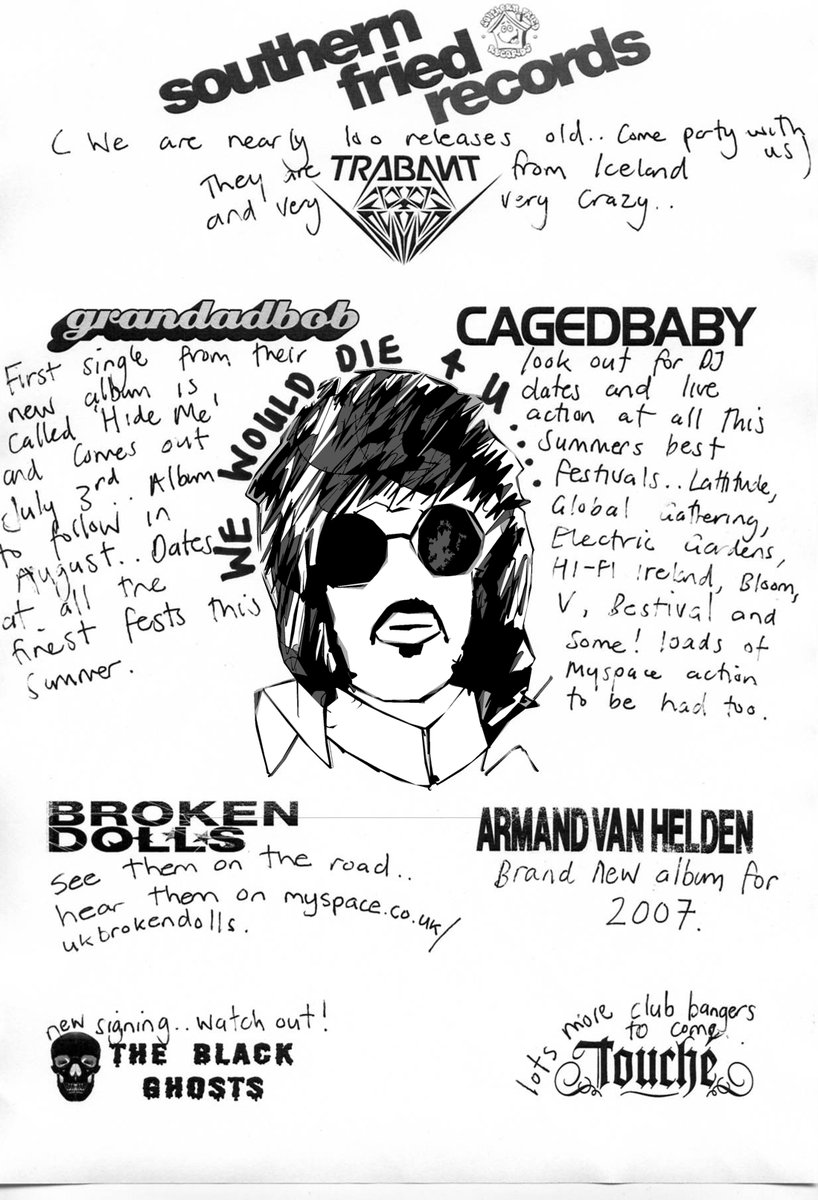 southern
fried
records
SOUTHERN FRIED
RECORDS
( We are nearly 100 releases old.. Come party with us)
They are TRABANT from Iceland
and very very crazy..
grandadbob
First single from their
new album is
called 'Hide Me'
and comes out
July 3rd.. Album
to follow in
August.. Dates
at all the
finest fests this
summer.
WE WOULD DIE 4 U....
CAGEDBABY
look out for DJ
dates and live
action at all this
summers best
festivals.. Lattitude,
Global Gathering,
Electric Gardens,
HI-FI Ireland, Bloom,
V, Bestival and
some! loads of
Myspace action
to be had too.
BROKEN
DOLLS
see them on the road..
hear them on myspace.co.uk/
ukbrokendolls.
ARMAND VAN HELDEN
Brand new album for
2007.
new signing.. watch out!
THE BLACK
GHOSTS
lots more club bangers
to come..
Touché